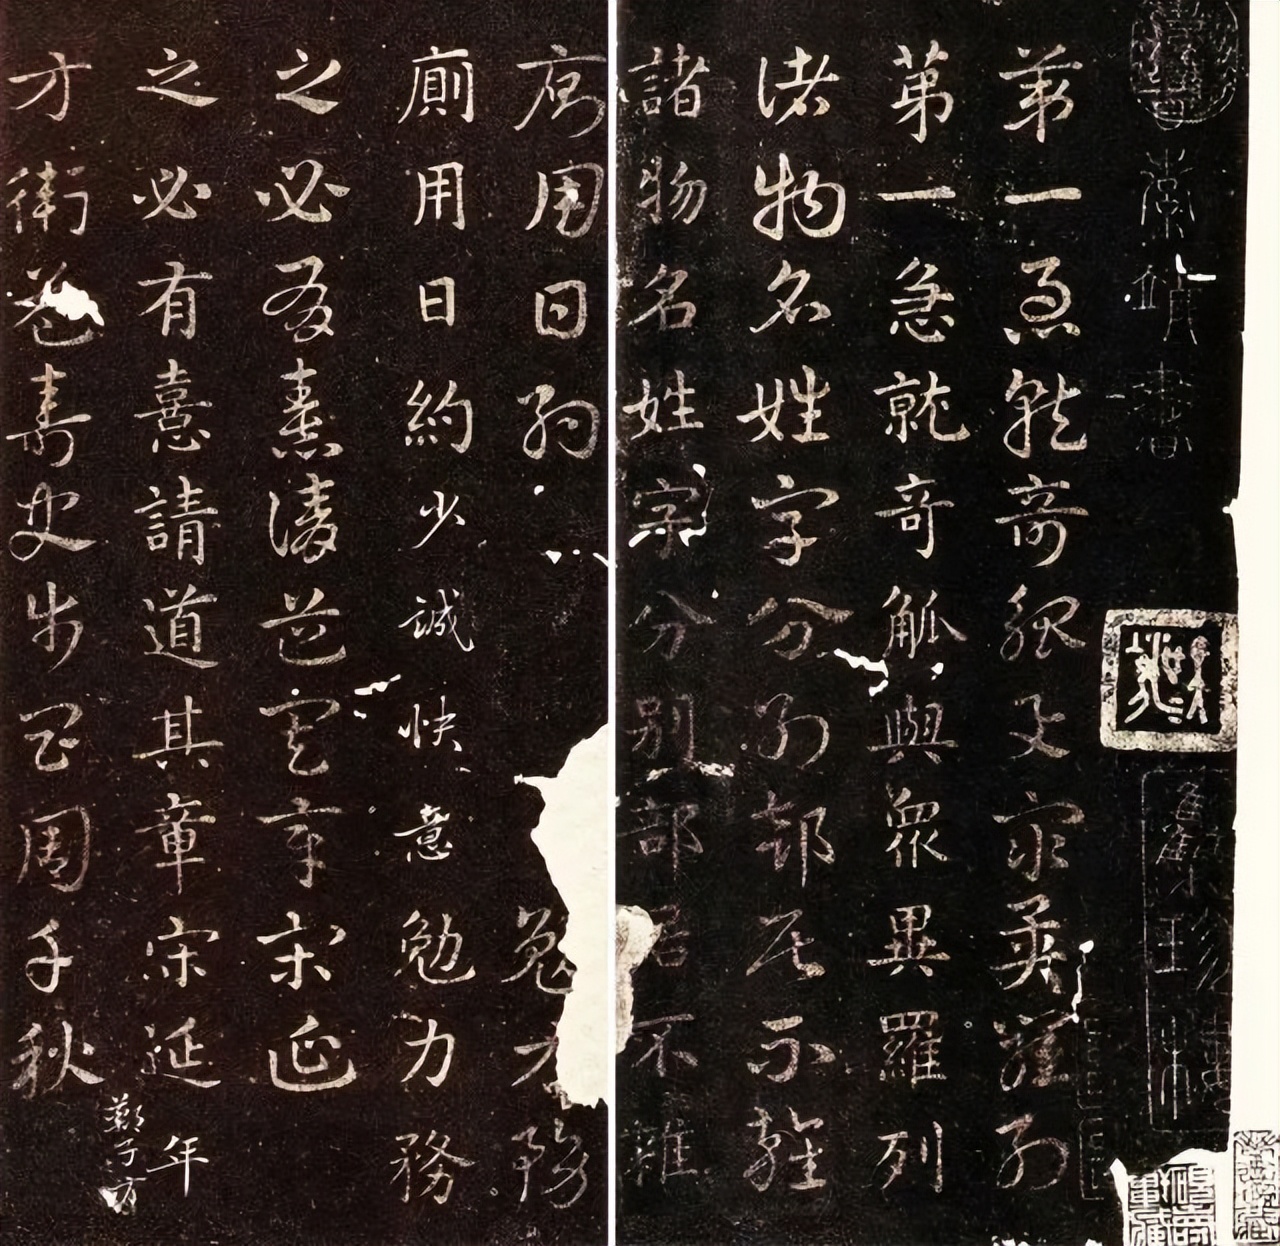 第一急就奇觚與眾異羅列
第一急就奇觚與眾異羅列
諸物名姓字分別部居不雜
諸物名姓字分別部居不雜
廁用日約勉力務
廁用日約少誠快意勉力務
之必有憙請道其章宋延
之必有憙請道其章宋延年
鄭子方
方衛益壽史步昌周千秋